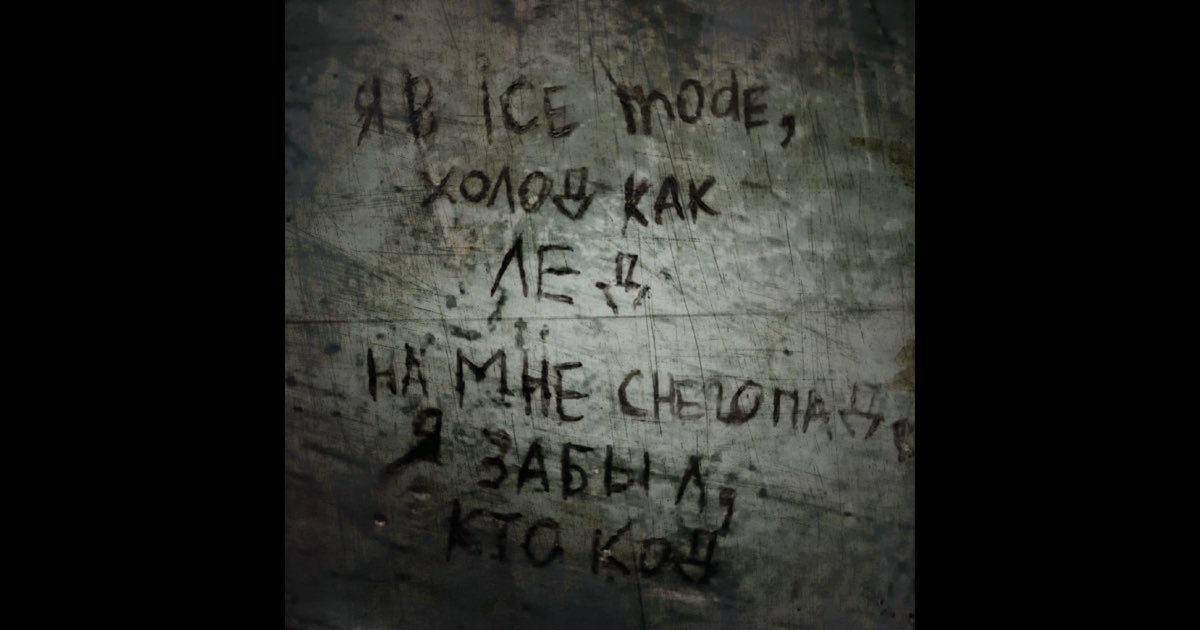 Я В iCE mOdE,
ХОЛОД КАК
ЛЕД
НА МНЕ СНЕГОПАД,
Я ЗАБЫЛ,
КТО КОД